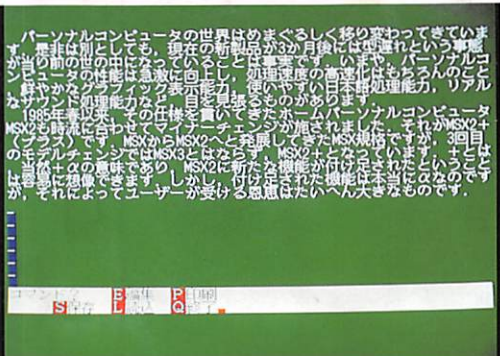 パーソナルコンピュータの世界はめまぐるしく移り変わってきていま
す。是非は別としても，現在の新製品が3か月後には型遅れという事態
が当り前の世の中になっていることは事実です。いまや，パーソナルコ
ンピュータの性能は急激に向上し，処理速度の高速化はもちろんのこと
，鮮やかなグラフィック表示能力，使いやすい日本語処理能力，リアル
なサウンド処理能力など，目を見張るものがあります。
1985年春以来，その仕様を貫いてきたホームパーソナルコンピュータ
MSX2も時流に合わせてマイナーチェンジが施されました。それがMSX2+
（プラス）です。MSXからMSX2へと発展してきたMSX規格ですが，3回目
のモデルチェンジではMSX3とはならず，MSX2+となっています。+とは
当然+αの意味であり，MSX2に新たな機能が付加されたということ
は容易に想像できます。しかし，付加された機能は本当にαなのです
が，それによってユーザーが受ける恩恵はたいへん大きなものです．
コマンドを E編集 P印刷
S保存 L読込 Q終了